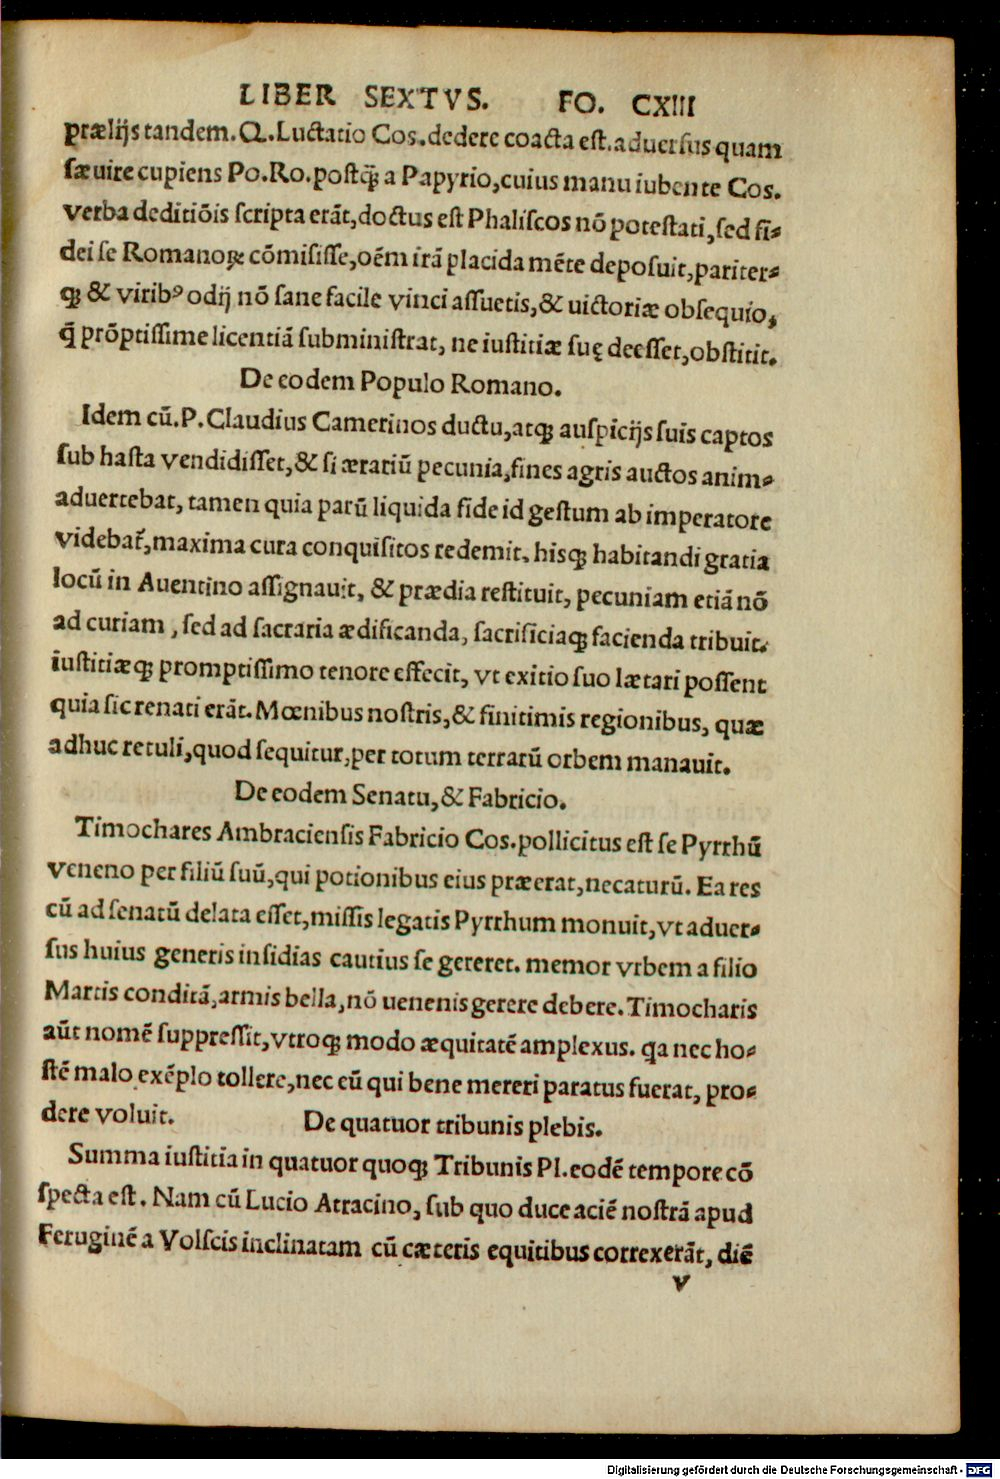 LIBER SEXTVS. FO. CXIII
prælijs tandem. Q. Luctatio Cos. dedere coacta est. aduersus quam
sæuire cupiens Po. Ro. postq̃ꝫ a Papyrio, cuius manu iubente Cos.
verba deditiōis scripta erāt, doctus est Phaliscos nō potestati, sed fi⸗
dei se Romanoꝝ cōmisisse, oēm irā placida mēte deposuit, pariter⸗
qꝫ & viribꝰ odij nō sane facile vinci assuetis, & uictoriæ obsequio,
q̃ prōptissime licentiā subministrat, ne iustitiæ suę deesset, obstitit.
De eodem Populo Romano.
Idem cū. P. Claudius Camerinos ductu, atqꝫ auspicijs suis captos
sub hasta vendidisset, & si ærariū pecunia, fines agris auctos anim⸗
aduertebat, tamen quia parū liquida fide id gestum ab imperatore
videbat᷑, maxima cura conquisitos redemit, hisqꝫ habitandi gratia
locū in Auentino assignauit, & prædia restituit, pecuniam etiā nō
ad curiam, sed ad sacraria ædificanda, sacrificiaqꝫ facienda tribuit.
iustitiæqꝫ promptissimo tenore effecit, vt exitio suo lætari possent
quia sic renati erāt. Mœnibus nostris, & finitimis regionibus, quæ
adhuc retuli, quod sequitur, per totum terrarū orbem manauit.
De eodem Senatu, & Fabricio.
Timochares Ambraciensis Fabricio Cos. pollicitus est se Pyrrhū
veneno per filiū suū, qui potionibus eius præerat, necaturū. Ea res
cū ad senatū delata esset, missis legatis Pyrrhum monuit, vt aduer⸗
sus huius generis insidias cautius se gereret. memor vrbem a filio
Martis conditā, armis bella, nō uenenis gerere debere. Timocharis
aūt nomē suppressit, vtroqꝫ modo æquitatē amplexus. qa nec ho⸗
stē malo exēplo tollere, nec eū qui bene mereri paratus fuerat, pro⸗
dere voluit. De quatuor tribunis plebis.
Summa iustitia in quatuor quoqꝫ Tribunis Pl. eodē tempore cō
specta est. Nam cū Lucio Atracino, sub quo duce aciē nostrā apud
Feruginē a Volscis inclinatam cū cæteris equitibus correxerāt, diē
v
Digitalisierung gefördert durch die Deutsche Forschungsgemeinschaft - DFG